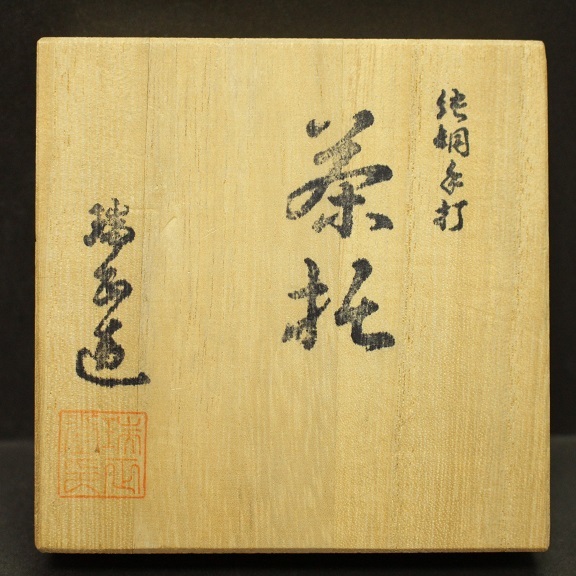 純銅手打
茶托
瑞玉造